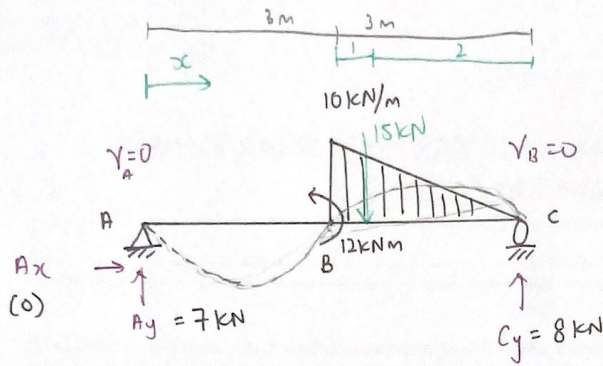 3m 3m
1 2
x
10kN/m
15kN
V_A=0 V_B=0
A C
12kNm
B
Ax
(0)
Ay = 7kN
Cy = 8kN